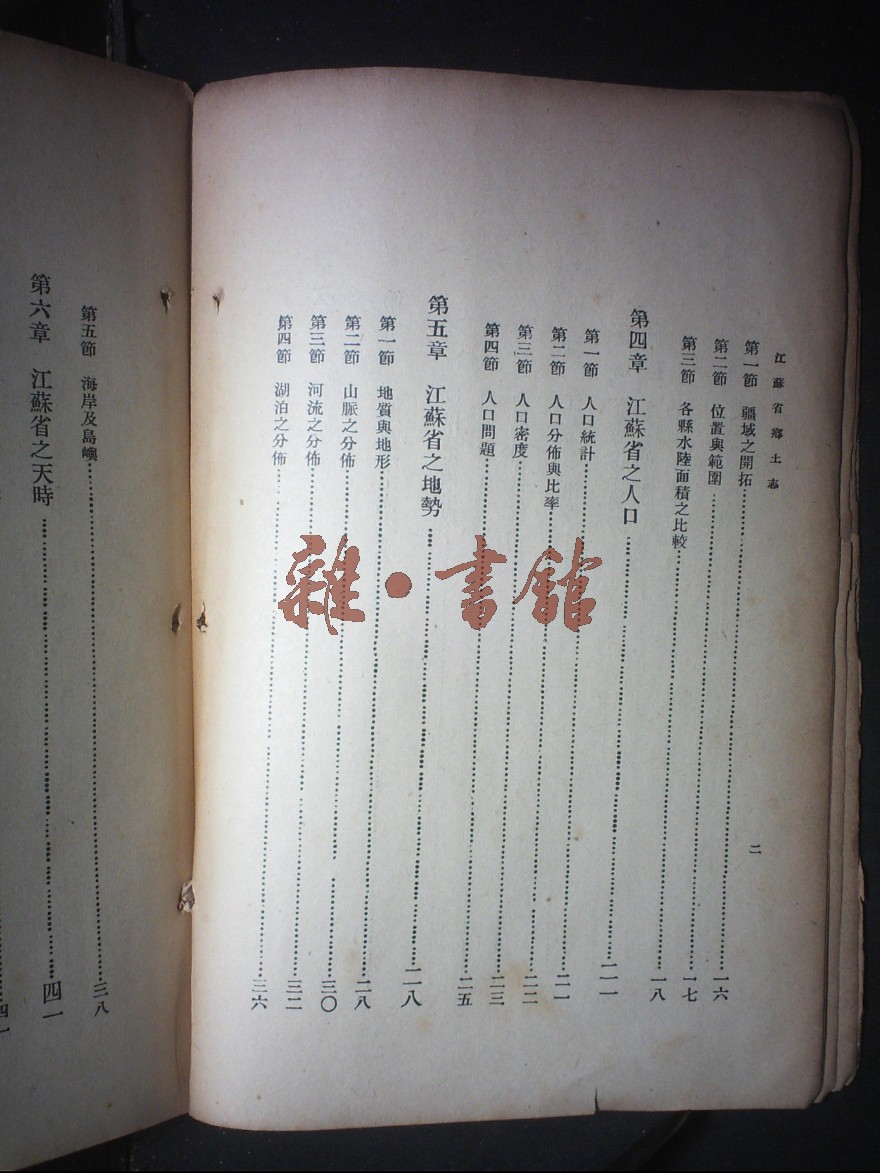 江蘇省鄉土志
二
第一節 疆域之開拓……一六
第二節 位置與範圍……一七
第三節 各縣水陸面積之比較……一八
第四章 江蘇省之人口……二一
第一節 人口統計……二一
第二節 人口分佈與比率……二二
第三節 人口密度……二三
第四節 人口問題……二五
第五章 江蘇省之地勢……二八
第一節 地質與地形……二八
第二節 山脈之分佈……三〇
第三節 河流之分佈……三二
第四節 湖泊之分佈……三六
第五節 海岸及島嶼……三八
第六章 江蘇省之天時……四一
四一
雜·書館